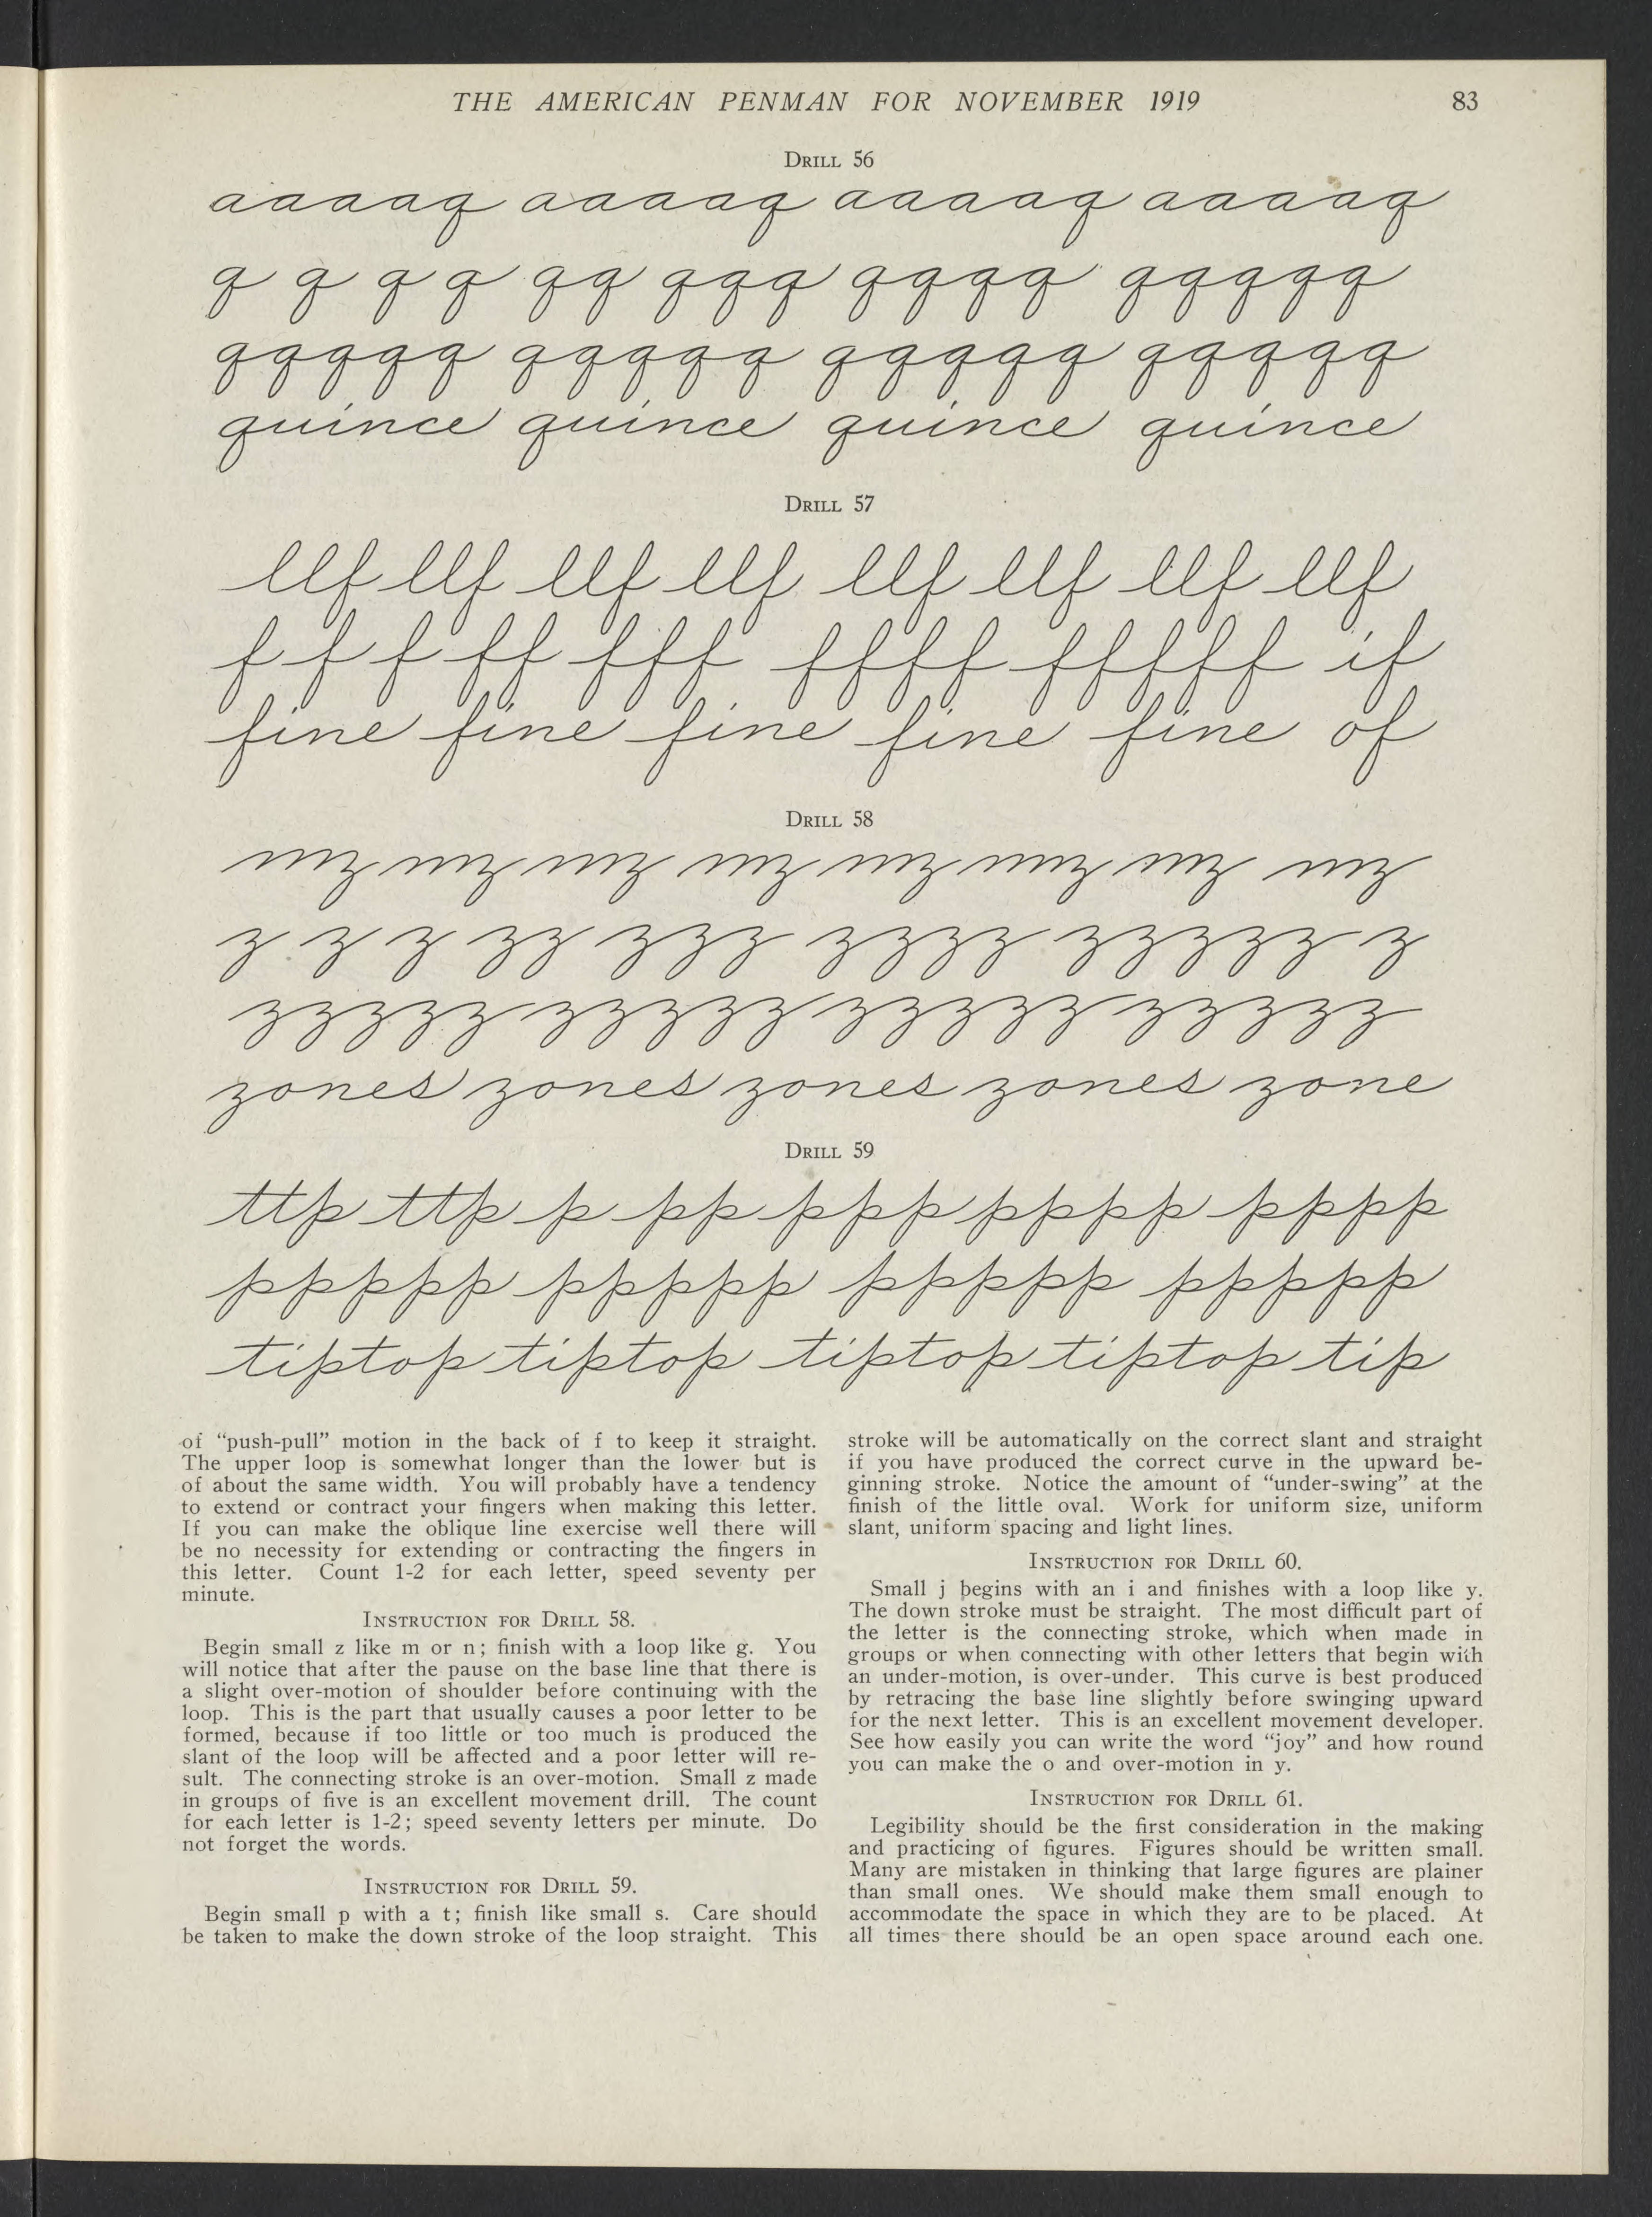 THE AMERICAN PENMAN FOR NOVEMBER 1919 83
DRILL 56
aaaaq aaaaq aaaaq aaaaq
q q q q qq qqq qqqq qqqqq
qqqqq qqqqq qqqqq qqqqq
quince quince quince quince
DRILL 57
llf llf llf llf llf llf llf llf
f f f ff fff ffff fffff if
fine fine fine fine fine of
DRILL 58
mz mz mz mz mz mz mz mz
z z z zz zzz zzzz zzzzz z
zzzzz zzzzz zzzzz zzzzz
zones zones zones zones zone
DRILL 59
ttp ttp p pp ppp pppp pppp
ppppp ppppp ppppp ppppp
tiptop tiptop tiptop tiptop tip
of “push-pull” motion in the back of f to keep it straight.
The upper loop is somewhat longer than the lower but is
of about the same width. You will probably have a tendency
to extend or contract your fingers when making this letter.
If you can make the oblique line exercise well there will
be no necessity for extending or contracting the fingers in
this letter. Count 1-2 for each letter, speed seventy per
minute.
INSTRUCTION FOR DRILL 58.
Begin small z like m or n; finish with a loop like g. You
will notice that after the pause on the base line that there is
a slight over-motion of shoulder before continuing with the
loop. This is the part that usually causes a poor letter to be
formed, because if too little or too much is produced the
slant of the loop will be affected and a poor letter will re-
sult. The connecting stroke is an over-motion. Small z made
in groups of five is an excellent movement drill. The count
for each letter is 1-2; speed seventy letters per minute. Do
not forget the words.
INSTRUCTION FOR DRILL 59.
Begin small p with a t; finish like small s. Care should
be taken to make the down stroke of the loop straight. This
stroke will be automatically on the correct slant and straight
if you have produced the correct curve in the upward be-
ginning stroke. Notice the amount of “under-swing” at the
finish of the little oval. Work for uniform size, uniform
slant, uniform spacing and light lines.
INSTRUCTION FOR DRILL 60.
Small j begins with an i and finishes with a loop like y.
The down stroke must be straight. The most difficult part of
the letter is the connecting stroke, which when made in
groups or when connecting with other letters that begin with
an under-motion, is over-under. This curve is best produced
by retracing the base line slightly before swinging upward
for the next letter. This is an excellent movement developer.
See how easily you can write the word “joy” and how round
you can make the o and over-motion in y.
INSTRUCTION FOR DRILL 61.
Legibility should be the first consideration in the making
and practicing of figures. Figures should be written small.
Many are mistaken in thinking that large figures are plainer
than small ones. We should make them small enough to
accommodate the space in which they are to be placed. At
all times there should be an open space around each one.